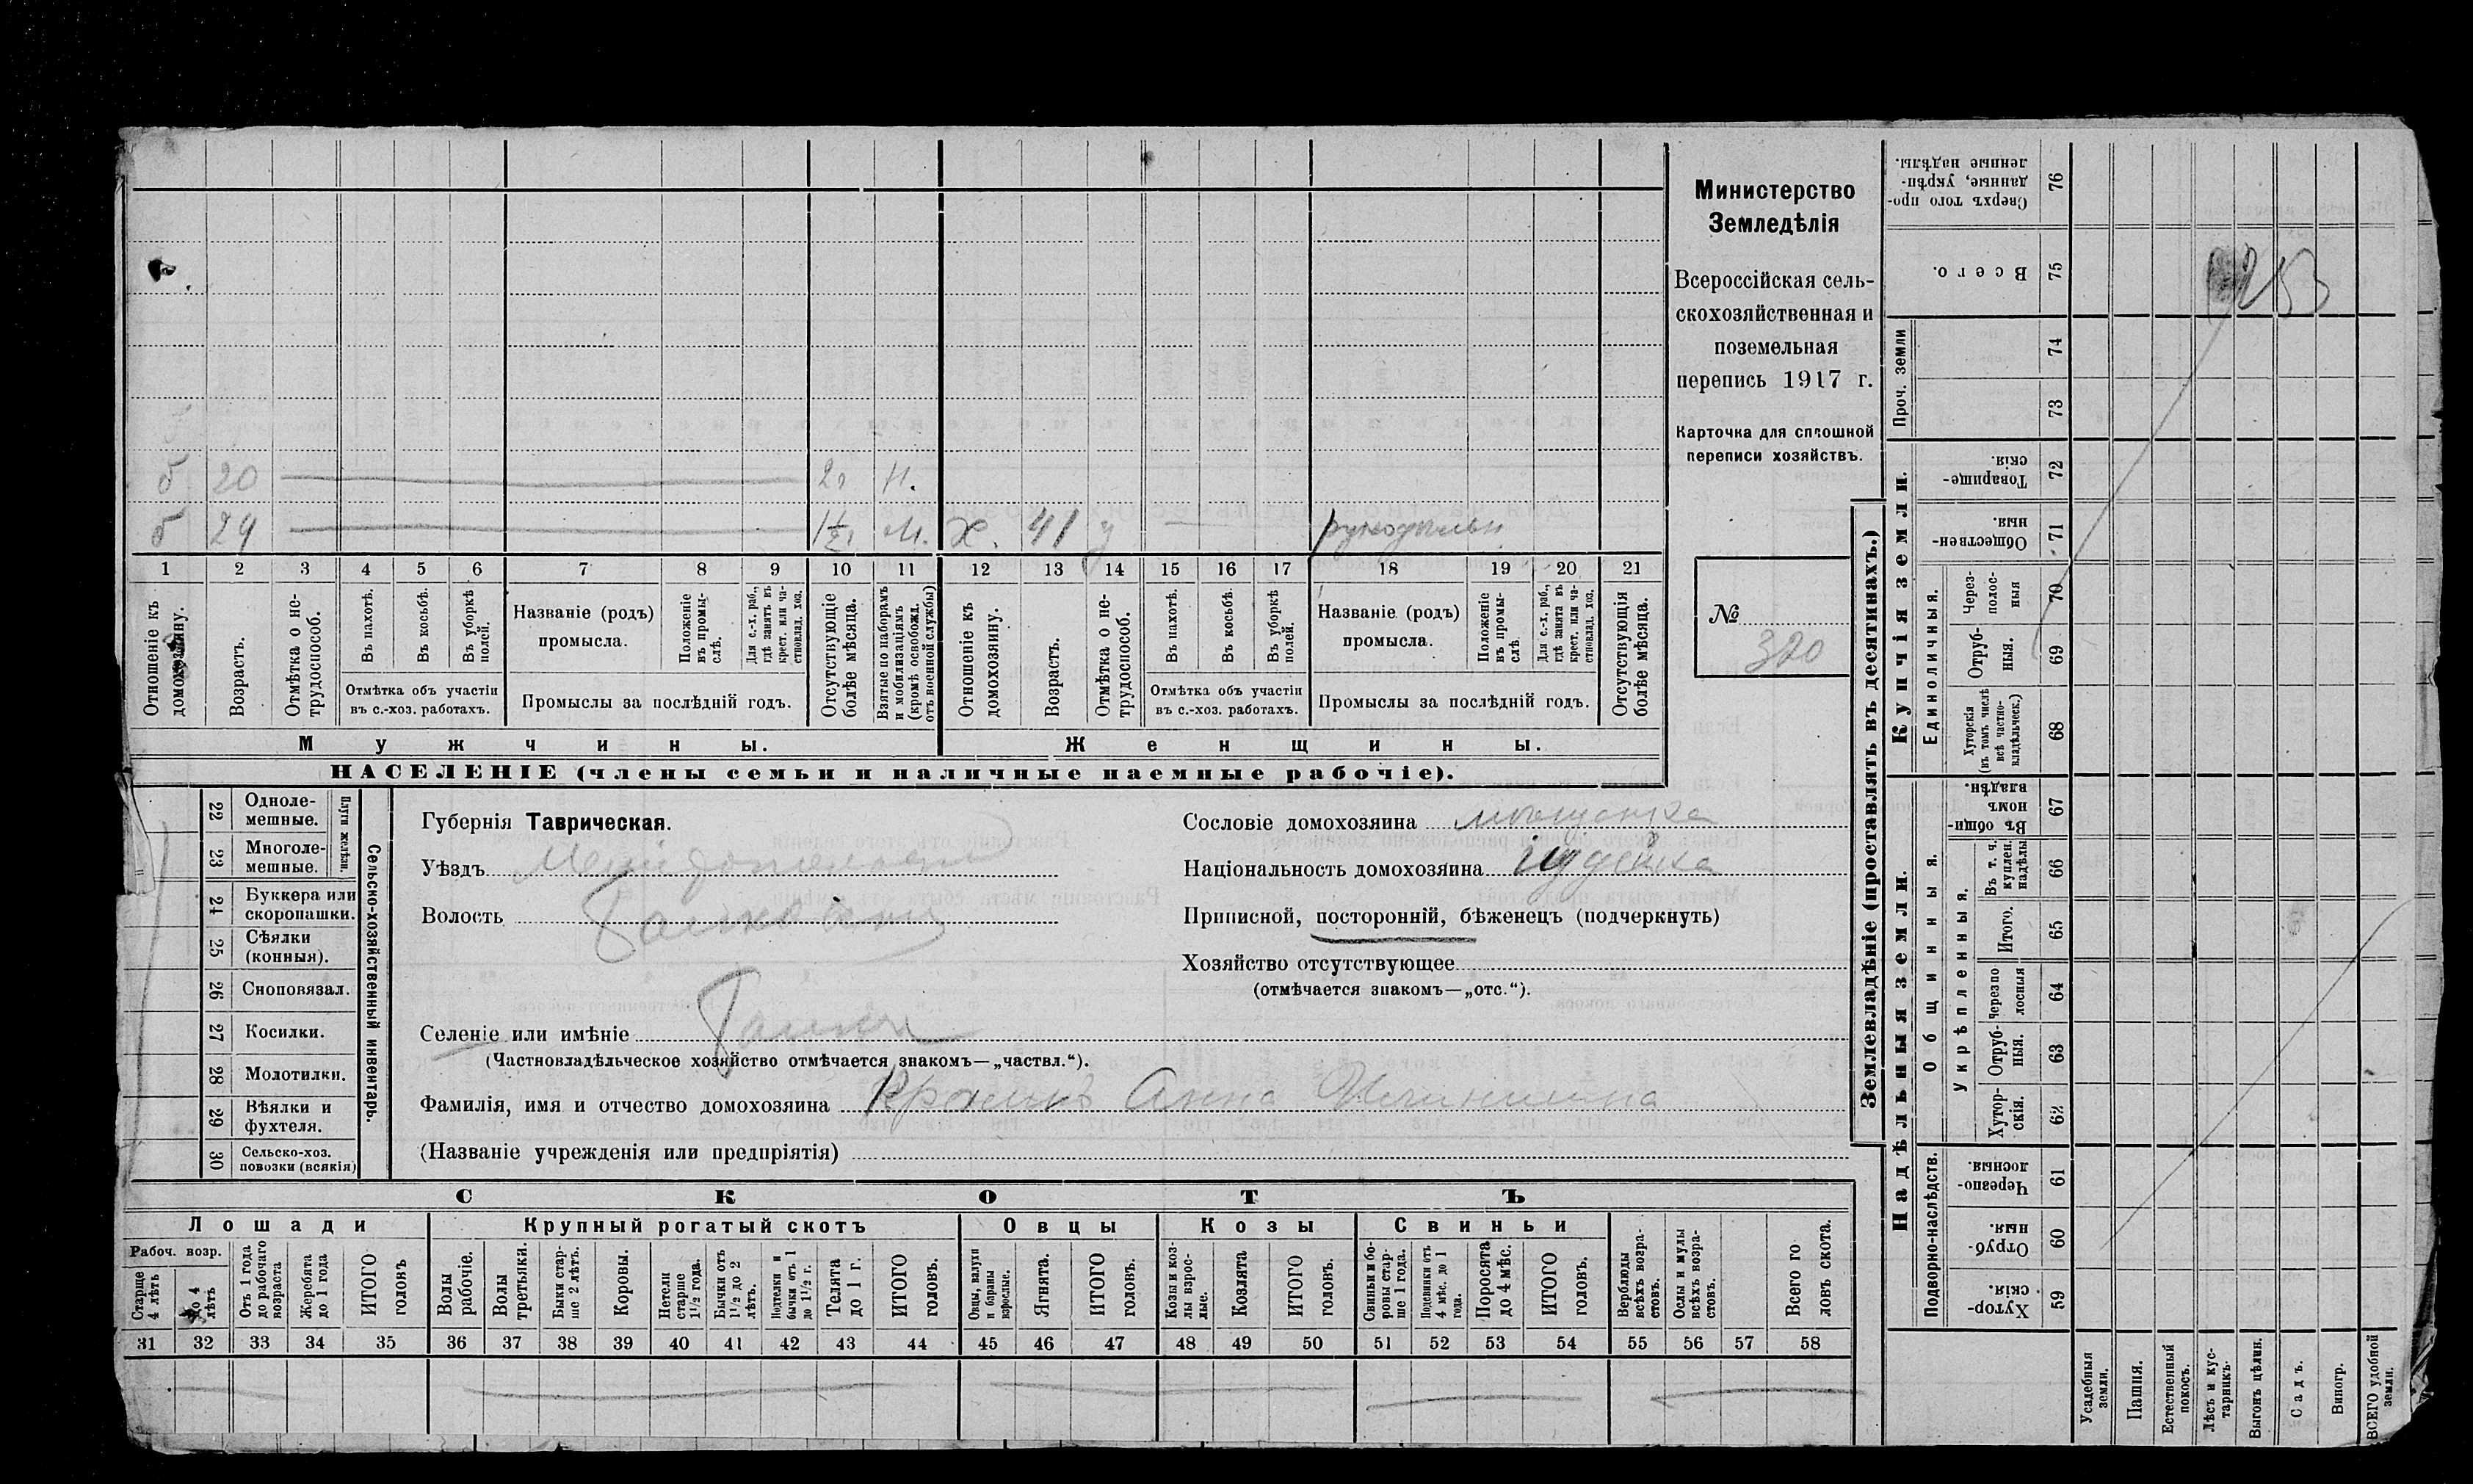 Министерство
Земледѣлія
Всероссійская сель-
скохозяйственная и
поземельная
перепись 1917 г.
Карточка для сплошной
переписи хозяйствъ.
№ 320
253
б 20 Н.
б 29 1½ М. Х. 41
1 2 3 4 5 6 7 8 9 10 11 12 13 14 15 16 17 18 19 20 21
Отношеніе къ домохозяину.
Возрастъ.
Отмѣтка о не-трудоспособ.
Въ пахотѣ.
Въ косьбѣ.
Въ уборкѣ полей.
Отмѣтка объ участіи
въ с.-хоз. работахъ.
Названіе (родъ)
промысла.
Положеніе въ промы-слѣ.
Для с.-х. раб., гдѣ занятъ въ крест. или ча-стновлад. хоз.
Промыслы за послѣдній годъ.
Отсутствующіе болѣе мѣсяца.
Взятые по наборамъ и мобилизаціямъ (кромѣ освобожд. отъ военной службы)
Отношеніе къ домохозяину.
Возрастъ.
Отмѣтка о не-трудоспособ.
Въ пахотѣ.
Въ косьбѣ.
Въ уборкѣ полей.
Отмѣтка объ участіи
въ с.-хоз. работахъ.
Названіе (родъ)
промысла.
Положеніе въ промы-слѣ
Для с.-х. раб., гдѣ занята въ крест. или ча-стновлад. хоз.
Промыслы за послѣдній годъ.
Отсутствующія болѣе мѣсяца.
Мужчины.
Женщины.
НАСЕЛЕНІЕ (члены семьи и наличные наемные рабочіе).
Сельско-хозяйственный инвентарь.
Плуги желѣзн.
22 Одноле-мешные.
23 Многоле-мешные.
24 Буккера или скоропашки.
25 Сѣялки (конныя).
26 Сноповязал.
27 Косилки.
28 Молотилки.
29 Вѣялки и фухтеля.
30 Сельско-хоз. повозки (всякія)
Губернія Таврическая.
Уѣздъ Мелитопольскій
Волость
Селеніе или имѣніе
(Частновладѣльческое хозяйство отмѣчается знакомъ—„частвл.“).
Фамилія, имя и отчество домохозяина Анна
(Названіе учрежденія или предпріятія)
Сословіе домохозяина мѣщанка
Національность домохозяина іудейка
Приписной, посторонній, бѣженец (подчеркнуть)
Хозяйство отсутствующее
(отмѣчается знакомъ—„отс.“).
СКОТЪ
Лошади
Рабоч. возр.
Старше 4 лѣтъ
до 4 лѣтъ
Отъ 1 года до рабочаго возраста
Жеребята до 1 года
ИТОГО головъ
Крупный рогатый скотъ
Волы рабочіе.
Волы третьяки.
Быки стар-ше 2 лѣтъ.
Коровы.
Нетели старше 1½ года.
Бычки отъ 1½ до 2 лѣтъ.
Подтелки и бычки отъ 1 до 1½ г.
Телята до 1 г.
ИТОГО головъ.
Овцы
Овцы, валухи и бараны взрослые.
Ягнята.
ИТОГО головъ.
Козы
Козы и коз-лы взрос-лые.
Козлята
ИТОГО головъ.
Свиньи
Свиньи и бо-ровы стар-ше 1 года.
Подсвинки отъ 4 мѣс. до 1 года.
Поросята до 4 мѣс.
ИТОГО головъ.
Верблюды всѣхъ возра-стовъ.
Ослы и мулы всѣхъ возра-стовъ.
Всего го ловъ скота.
31 32 33 34 35 36 37 38 39 40 41 42 43 44 45 46 47 48 49 50 51 52 53 54 55 56 57 58
Землевладѣніе (проставлять въ десятинахъ.)
Купчія земли.
Надѣльныя земли.
Сверхъ того про-данные, укрѣп-ленные надѣлы. 76
Всего. 75
Проч. земли 74
73
Товарище-скія. 72
Обществен-ныя. 71
Единоличныя.
Через-полос-ныя 70
Отруб-ныя. 69
Хуторскія (въ томъ числѣ всѣ частно-владѣльческ.) 68
Общинныя.
Въ общи-номъ владѣн. 67
Укрѣпленныя.
Въ т. ч. куплен. надѣлы 66
Итого. 65
Черезпо лосныя 64
Отруб-ныя. 63
Хутор-скія. 62
Подворно-наслѣдств.
Черезпо-лосныя. 61
Отруб-ныя. 60
Хутор-скія. 59
Усадебныя земли.
Пашня.
Естественный покосъ.
Лѣсъ и кус-тарникъ.
Выгонъ цѣлин.
Садъ.
Виногр.
ВСЕГО удобной земли.